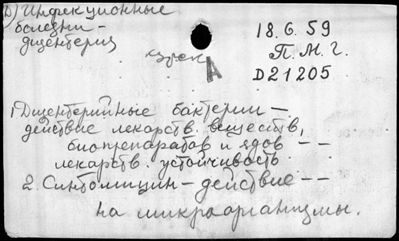 D) Инфекционные
болезни –
дизентерия
18.6.59
П.М.Г.
A
D21205
1. Дизентерийные бактерии –
действие лекарств. веществ,
биопрепаратов и ядов – –
лекарств. устойчивость
2. Синтомицин – действие – –
на микроорганизмы.